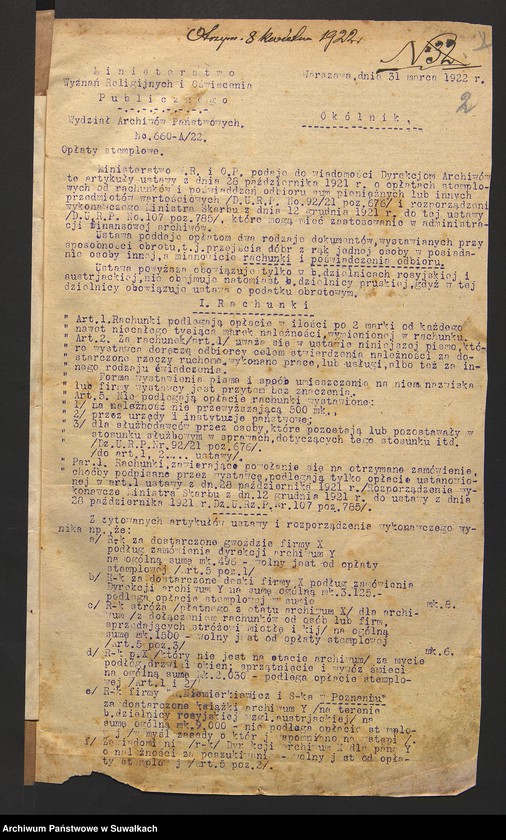 Otrzym. 8 kwietnia 1922r
N: 32
2
Ministerstwo
Wyznań Religijnych i Oświecenia
Publicznego
Wydział Archiwów Państwowych.
No.660-A/22.
Warszawa, dnia 31 marca 1922 r.
Okólnik.
Opłaty stemplowe.
Ministerstwo W.R. i O.P. podaje do wiadomości Dyrekcjom Archiwów
te artykuły ustawy z dnia 28 października 1921 r. o opłatach stemplo-
wych od rachunków i poświadczeń odbioru sum pieniężnych lub innych
przedmiotów wartościowych /D.U.R.P. No.92/21 poz.676/ i rozporządzeni
wykonawczego Ministra Skarbu z dnia 12 grudnia 1921 r. do tej ustawy
/D.U.R.P. No.107 poz.785/, które mogą mieć zastosowanie w administra-
cji finansowej archiwów.
Ustawa poddaje opłatom dwa rodzaje dokumentów, wystawianych przy
sposobności obrotu, t.j. przejścia dóbr z rąk jednej osoby w posiada-
nie osoby innej, a mianowicie rachunki i poświadczenia odbioru.
Ustawa powyższa obowiązuje tylko w b.dzielnicach rosyjskiej i
austrjackiej, nie obejmuje natomiast b.dzielnicy pruskiej, gdyż w tej
dzielnicy obowiązuje ustawa o podatku obrotowym.
I. Rachunki
" Art.1. Rachunki podlegają opłacie w ilości po 2 marki od każdego
" nawet niecałego tysiąca marek należności, wymienionej w rachunku.
" Art.2. Za rachunek/art.1/ uważa się w ustawie niniejszej pismo, któ-
" re wystawca doręcza odbiorcy celem stwierdzenia należności za do-
" starczone rzeczy ruchome, wykonane prace, lub usługi, albo też za in-
" nego rodzaju świadczenia.
" Forma wystawienia pisma i sposób umieszczenia na niem nazwiska
" lub firmy wystawcy jest przytem bez znaczenia.
" Art.5. Nie podlegają opłacie rachunki wystawione:
" 1/ na należność nie przewyższającą 500 mk.,
" 2/ przez urzędy i instytucje państwowe;
" 3/ dla służbodawców przez osoby, które pozostają lub pozostawały w
" stosunku służbowym w sprawach, dotyczących tego stosunku itd.
" /Dz.U.R.P. Nr.92/21 poz.676/.
" /do art.1, 2..... ustawy/.
" Par.1. Rachunki, zawierające powołanie się na otrzymane zamówienie,
" choćby podpisane przez wystawcę, podlegają tylko opłacie ustanowio-
" nej w art.1 ustawy z dn.28 października 1921 r./Rozporządzenie wy-
konawcze Ministra Skarbu z dn.12 grudnia 1921 r. do ustawy z dnia
28 października 1921 r. Dz.U.R.P. Nr.107 poz.785/.
Z cytowanych artykułów ustawy i rozporządzenia wykonawczego wy-
nika np., że:
a/ R-k za dostarczone gwoździe firmy X
podług zamówienia dyrekcji archiwum Y
na ogólną sumę mk.495 - wolny jest od opłaty
stemplowej /art.5 poz.1/
b/ R-k za dostarczone deski firmy X podług zamówienia
Dyrekcji archiwum Y na sumę ogólną mk.3.125.-
podlega opłacie stemplowej w sumie mk.8.
c/ R-k stróża /płatnego z etatu archiwum X/ dla archi-
wum /z dołączeniem rachunków od osób lub firm,
sprzedających stróżowi miotłę i kij/ na ogólną
sumę mk.1500 - wolny jest od opłaty stemplowej
/art.5 poz.3/
d/ R-k p.X /który nie jest na etacie archiwum/ za mycie mk.6.
podłóg, drzwi i okien; sprzątnięcie i wywóz śmieci
na ogólną sumę mk.2.030 - podlega opłacie stemplo-
wej /art.1 i 2/
e/ R-k firmy " Niemierkiewicz i S-ka - Poznaniu"
za dostarczone książki archiwum Y /na terenie
b.dzielnicy rosyjskiej wzgl.austrjackiej/ na
sumę ogólną mk. .000 - nie podlega opłacie stemplo-
wej /w myśl zasady o której wspomniano na wstępie/
f/ Zawiadomienie /r-k/ Dyrekcji archiwum X dla pana Y
o należności za poszukiwania - wolny jest od opła-
ty stemplowej /art.5 poz.2/.
Archiwum Państwowe w Suwałkach